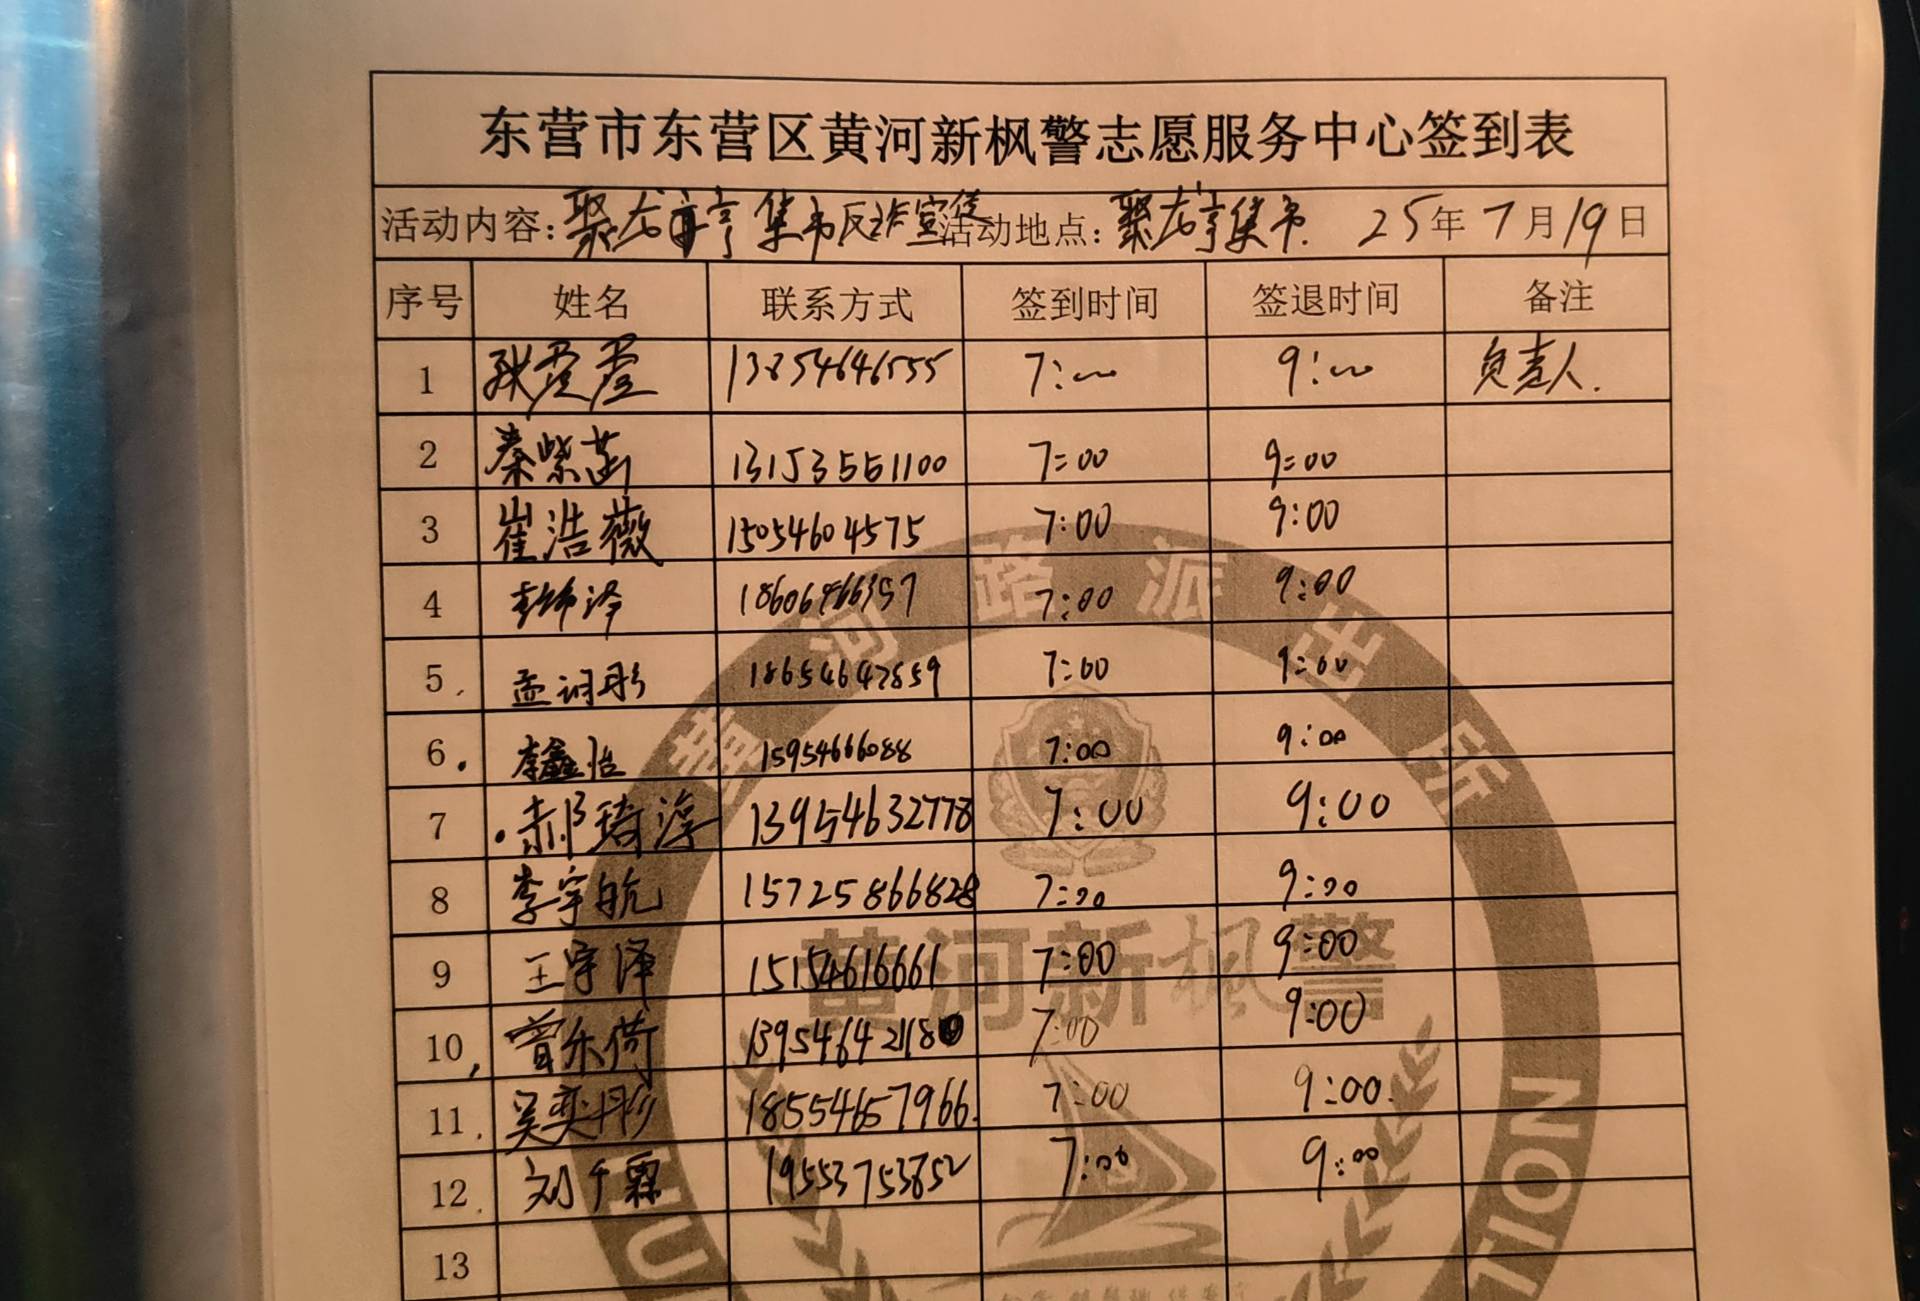 东营市东营区黄河新枫警志愿服务中心签到表
活动内容：聚龙亭集市反诈宣传 活动地点：聚龙亭集市. 25年7月19日
序号 姓名 联系方式 签到时间 签退时间 备注
1 7:00 9:00 负责人.
2 秦紫菡 13153551100 7:00 9:00
3 崔浩薇 15054604575 7:00 9:00
4 7:00 9:00
5 18654647859 7:00 9:00
6 李鑫怡 15954666088 7:00 9:00
7 郝琦淳 13954632778 7:00 9:00
8 李宇航 15725866828 7:00 9:00
9 王宇泽 15154616661 7:00 9:00
10 曾乐荷 7:00 9:00
11 吴奕彤 18554657966. 7:00 9:00.
12 刘千霖 19553753852 7:00 9:00
13
黄河路派出所
黄河新枫警